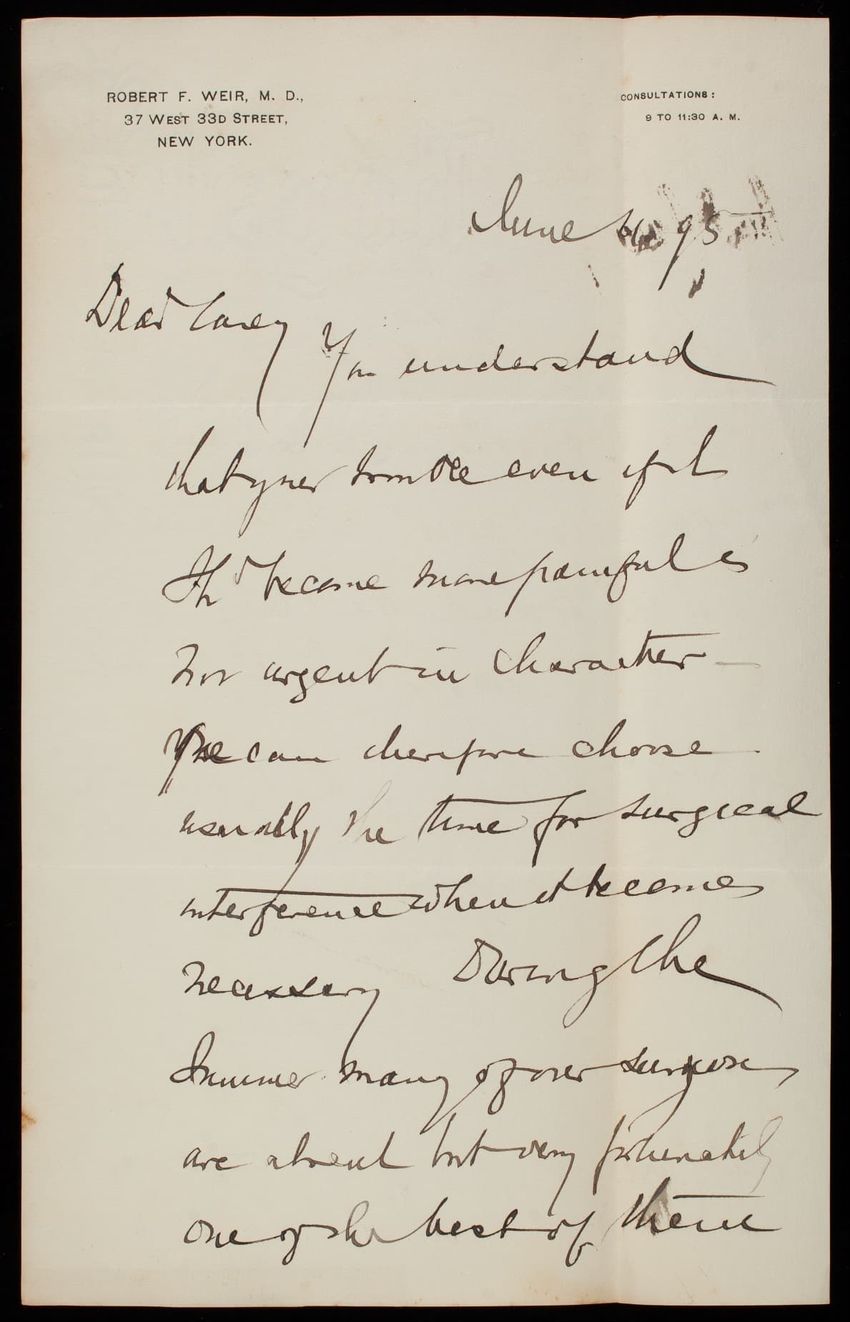 ROBERT F. WEIR, M. D.,
37 WEST 33D STREET,
NEW YORK.
CONSULTATIONS:
9 TO 11:30 A. M.
June 95
Dear Casey
You understand
that your trouble even if it
Shd become more painful is
not urgent in character —
You can therefore choose
usually the time for surgical
interference when it becomes
necessary During the
Summer many of our surgeons
are absent but very fortunately
one of the best of them